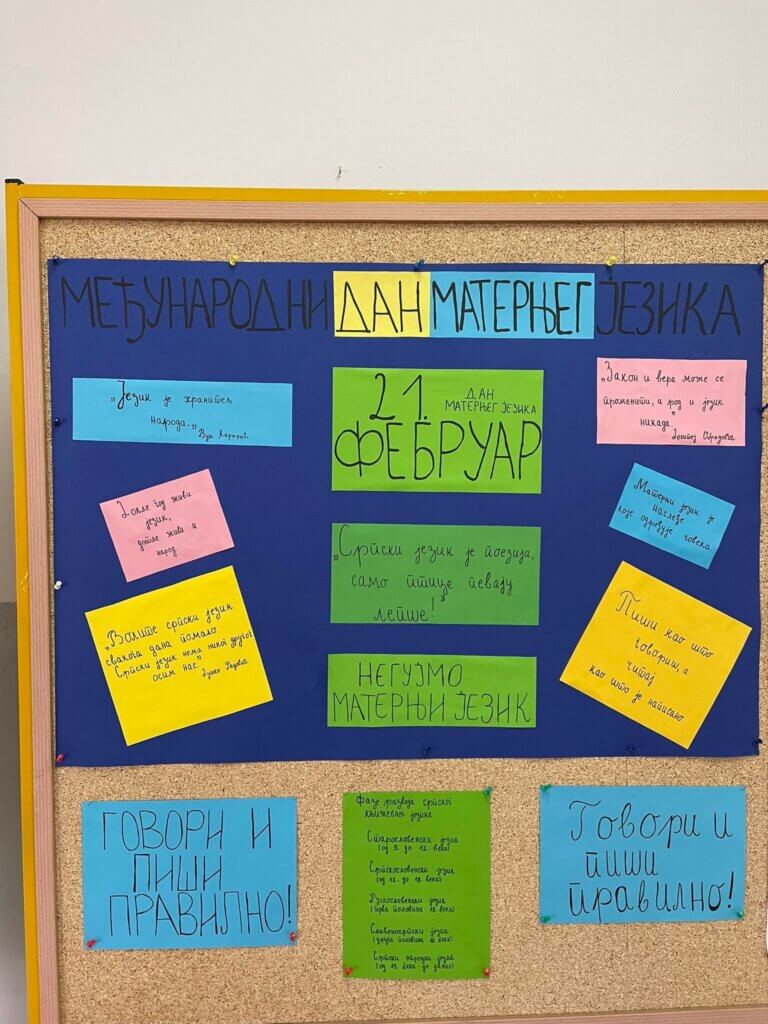 МЕЂУНАРОДНИ ДАН МАТЕРЊЕГ ЈЕЗИКА
„Језик је хранитељ
народа.“
Вук Караџић
21.
ДАН
МАТЕРЊЕГ ЈЕЗИКА
ФЕБРУАР
„Закон и вера може се
променити, а род и језик
никада.“
Доситеј Обрадовић
Докле год живи
језик,
дотле живи и
народ
„Српски језик је поезија,
само птице певају
лепше!“
Матерњи језик је
наслеђе
које одређује човека.
„Волите српски језик
свакога дана помало.
Српски језик нема никог другог
осим нас“
Душко Радовић
НЕГУЈМО
МАТЕРЊИ ЈЕЗИК
Пиши као што
говориш, а
читај
као што је написано.
ГОВОРИ И
ПИШИ
ПРАВИЛНО!
Фазе развоја српског
књижевног језика
Старословенски језик
(од 9. до 12. века)
Српскословенски језик
(од 12. до 18. века)
Рускословенски језик
(прва половина 18. века)
Славеносрпски језик
(друга половина 18. века)
Српски народни језик
(од 19. века до данас)
Говори и
пиши
правилно!